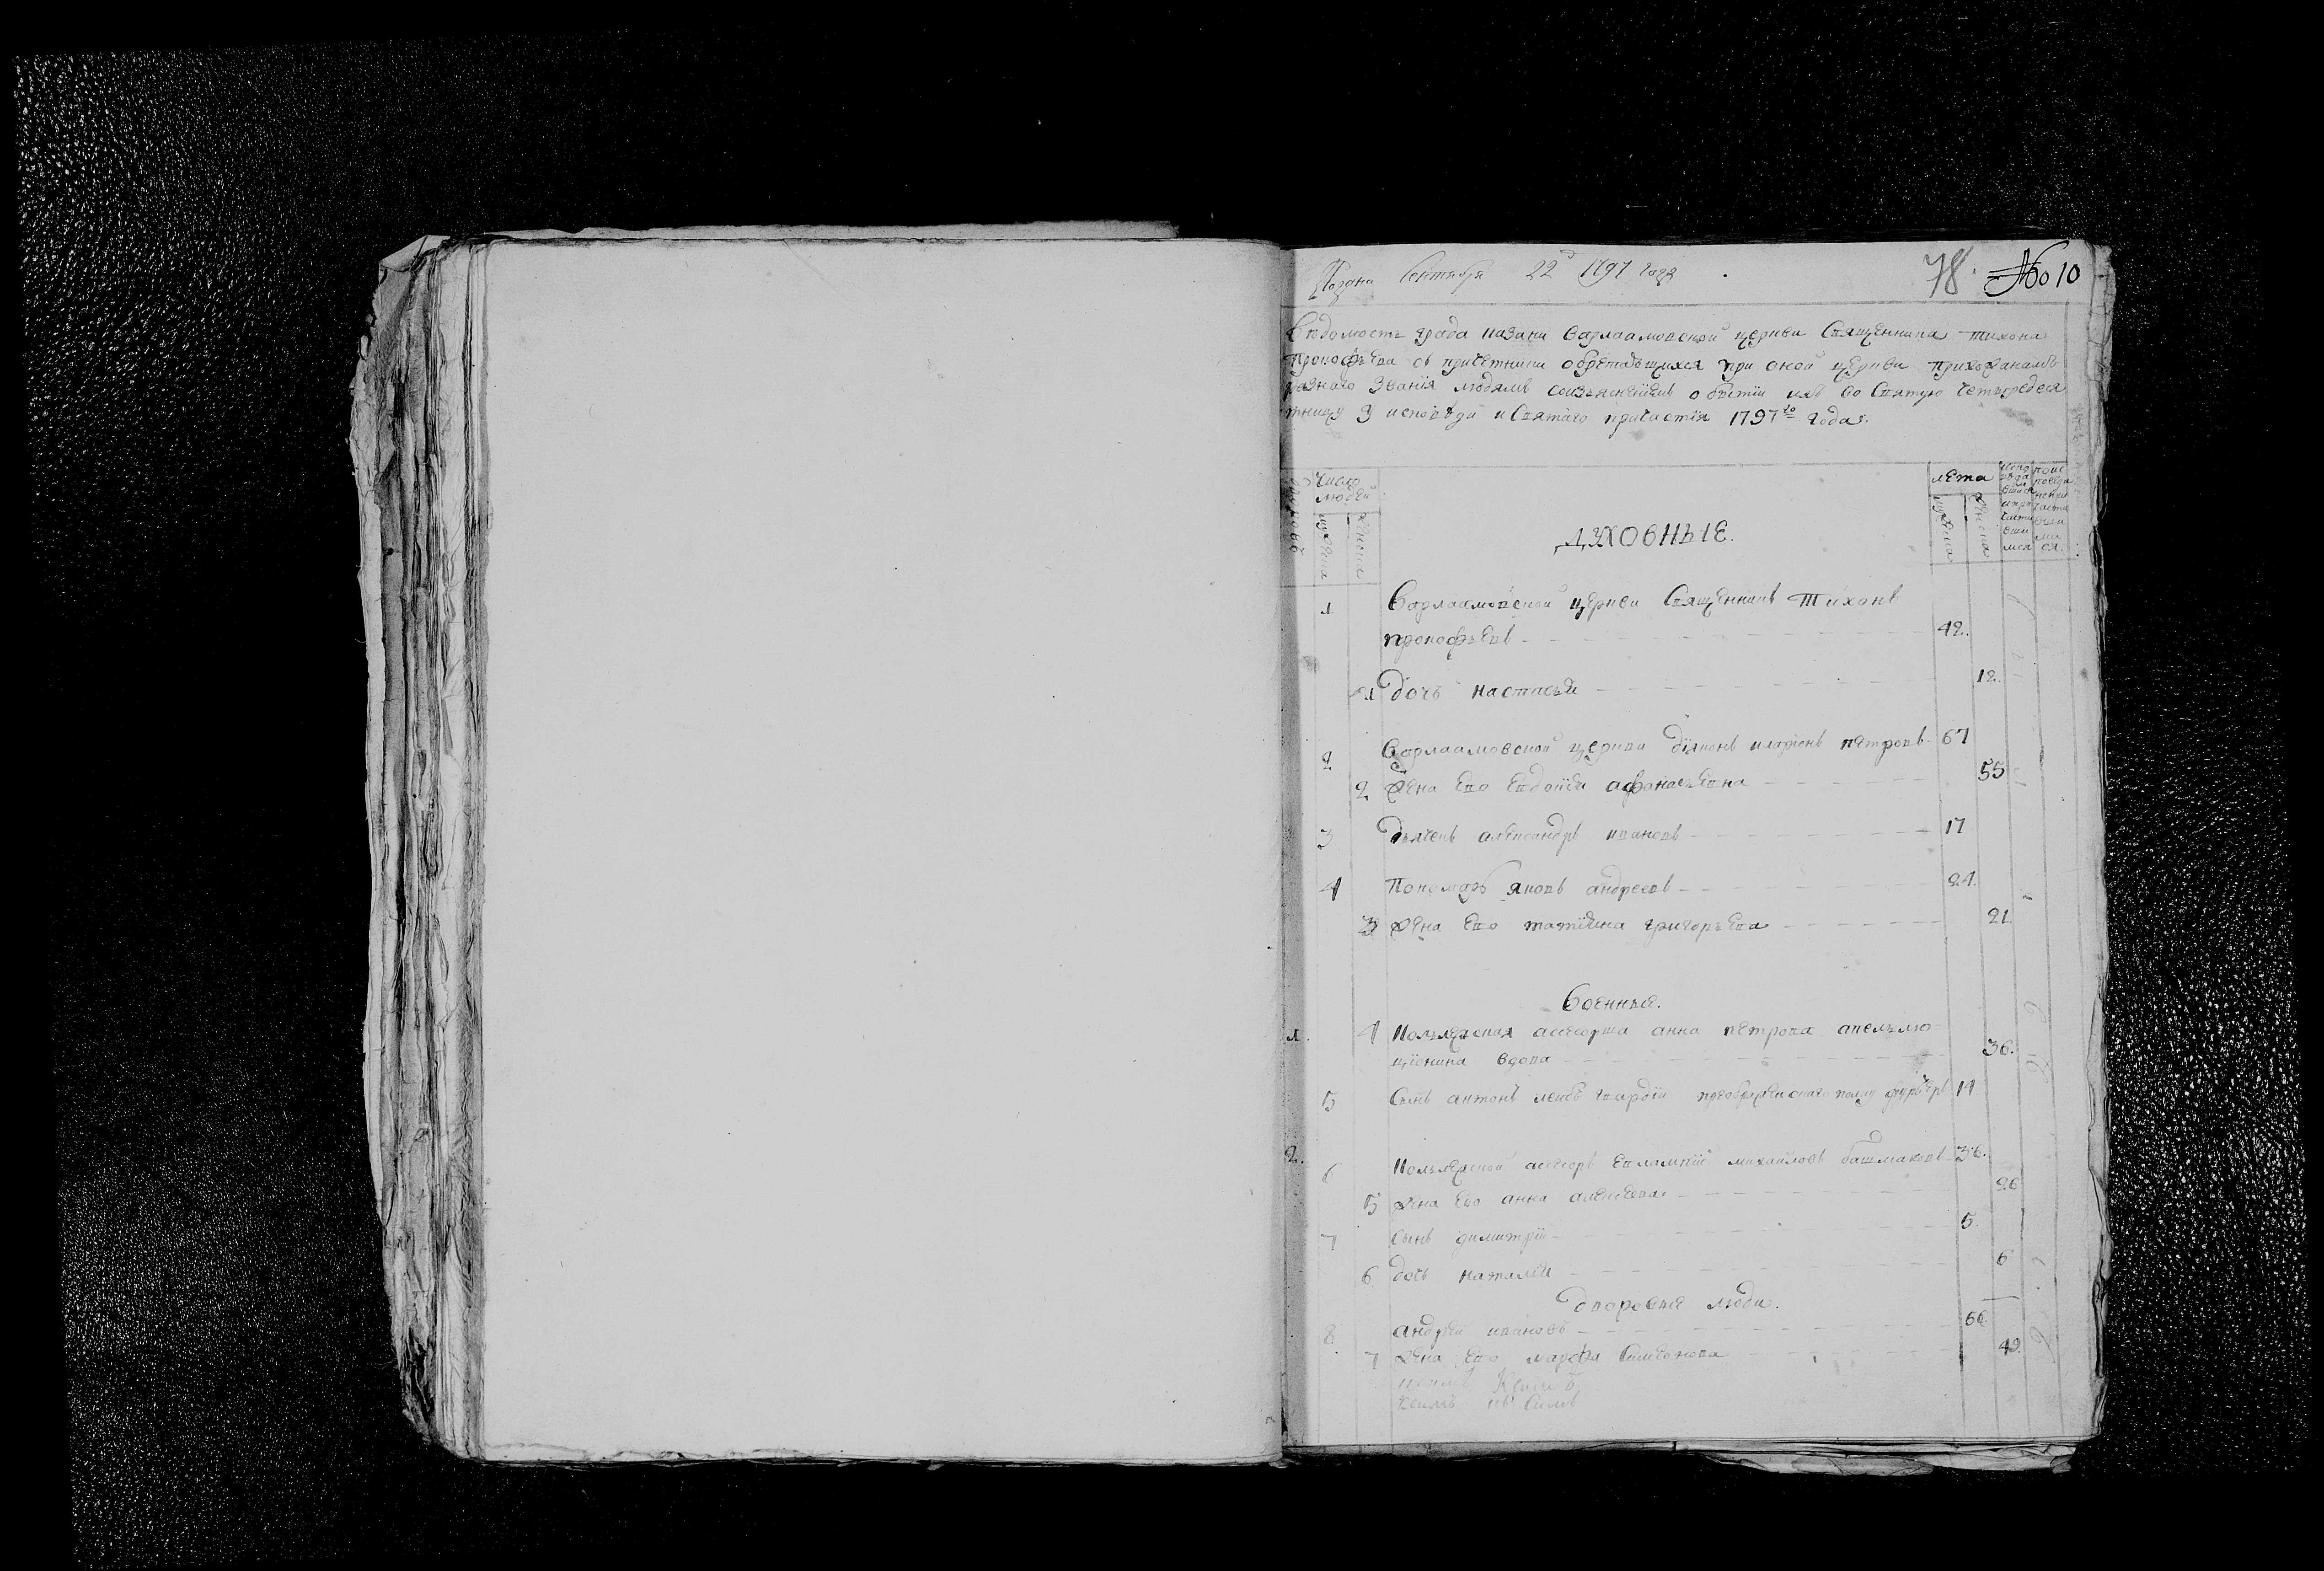 Подана Сентября 22 д 1797 года
78. No 10
Ведомость града казани Варлаамовской церкви Священника тихона
Прокофьева съ причетники обретающихся при оной церкви прихожанамъ
разнаго звания людямъ соизъяснениемъ о бытии ихъ во Святую Четыредеся
тницу у исповеди и Святаго причастия 1797 го года.
Число людей
мужеска
женска
лета
мужеска
женска
Духовные.
1 Варлаамовской церкви Священникъ Тихонъ
прокофьевъ 42.
1 дочь настасья 12.
2 Варлаамовской церкви дияконъ иларионъ петровъ 67
2 жена ево евдокия афанасьевна 55
3 дьячекъ александръ ивановъ 17
4 Пономарь яковъ андреевъ 24.
3 жена ево татияна григорьева 21.
Военные.
1. 4 Коллежская асесорша анна петрова
вдова 36.
5 Сынъ антонъ лейбъ гвардии преображенскаго полку фурьеръ 14
2. 6 Коллежской асесоръ евлампий михайловъ башмаковъ 36.
5 жена ево анна алексеева 26
7 сынъ димитрий 5.
6 дочь наталия 6
дворовые люди.
8. андрей ивановъ 64.
7 жена ево марфа Симеонова 49.